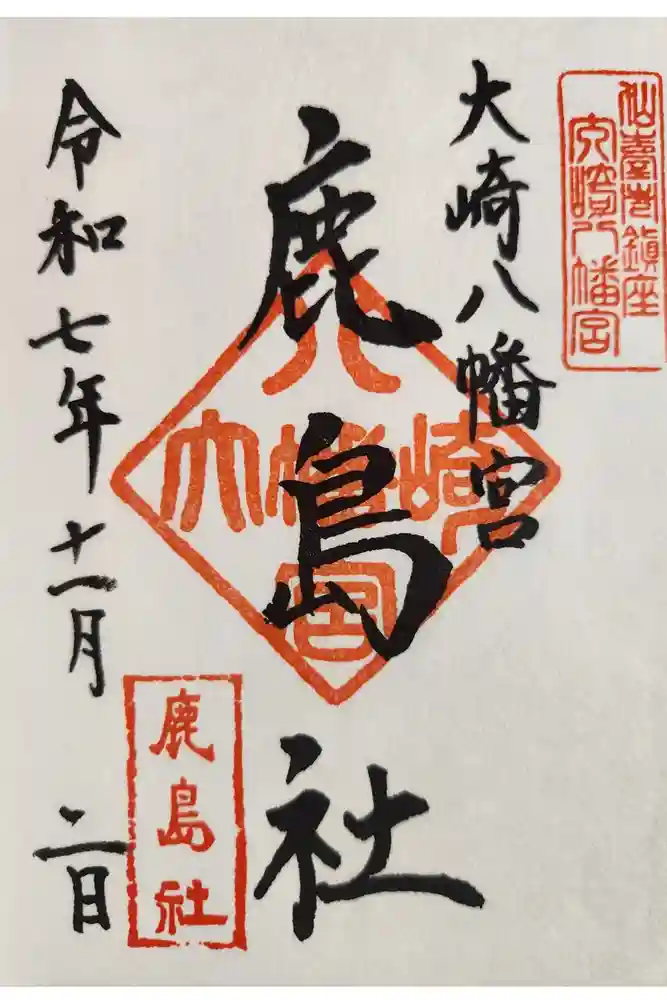 仙臺市鎮座
大崎八幡宮
大崎八幡宮
鹿島社
八
大幡崎
宮
鹿島社
令和七年十一月二日